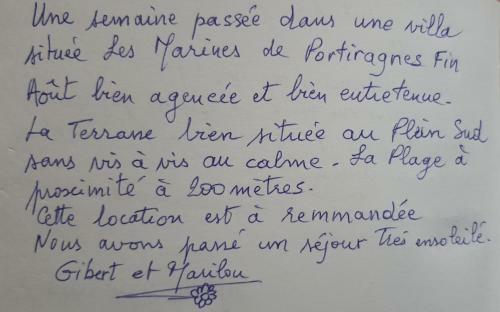 Une semaine passée dans une villa
située Les Marines de Portiragnes Fin
Août bien agencée et bien entretenue.
La Terrasse bien située au Plein Sud
sans vis à vis au calme. La Plage à
proximité à 200 mètres.
Cette location est à remmandée
Nous avons passé un séjour Très ensoleilé.
Gibert et Marilou